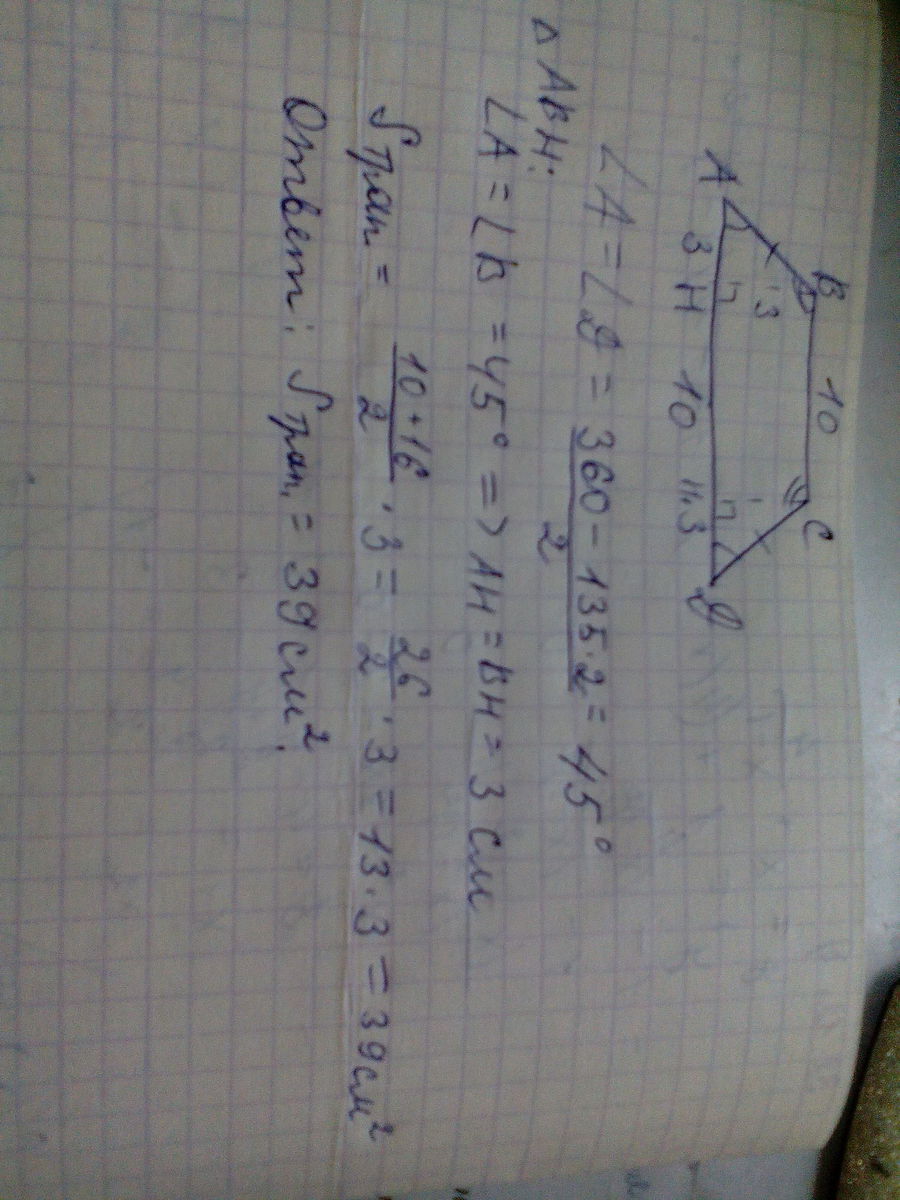 B 10 C
3
A 3 H 10 3 D
∠A = ∠D = (360 - 135·2)/2 = 45°
△ ABH:
∠A = ∠B = 45° => AH = BH = 3 см
Sтрап = (10+16)/2 · 3 = 26/2 · 3 = 13·3 = 39 см²
Ответ: Sтрап. = 39 см².